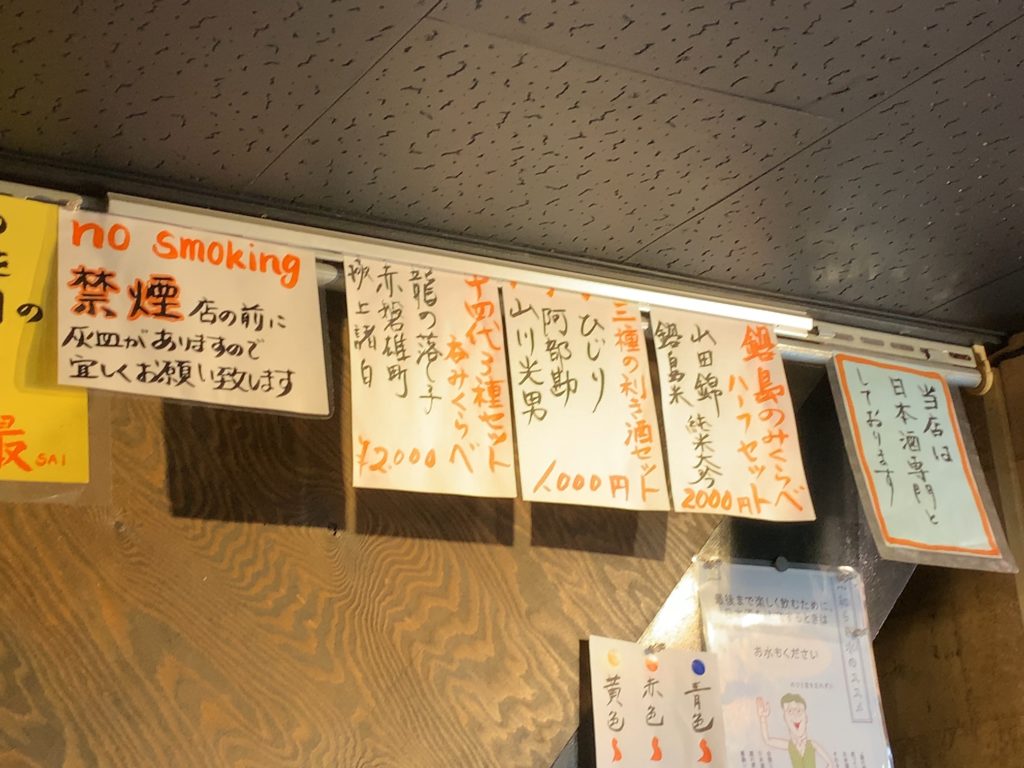 の
最
SAI
no smoking
禁煙 店の前に
灰皿がありますので
宜しくお願い致します
十四代3種セット
のみくらべ
龍の落し子
赤磐雄町
極上諸白
¥2,000
三種の利き酒セット
・ひじり
・阿部勘
・山川光男
1,000円
鍋島のみくらべ
ハーフセット
山田錦 純米大吟
鍋島米
2000円
当店は
日本酒専門と
しております
黄色
赤色
青色
最後まで楽しく飲むために、
お水もください